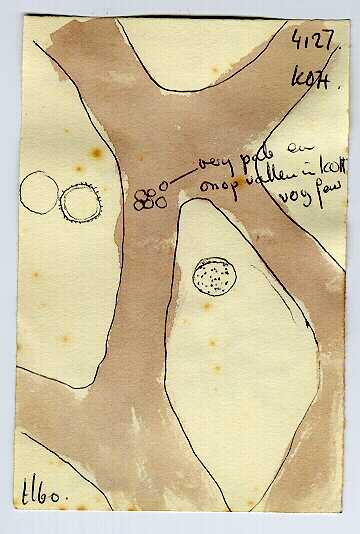 4127.
KOH.
very pale en
onopvallen in KOH
very few